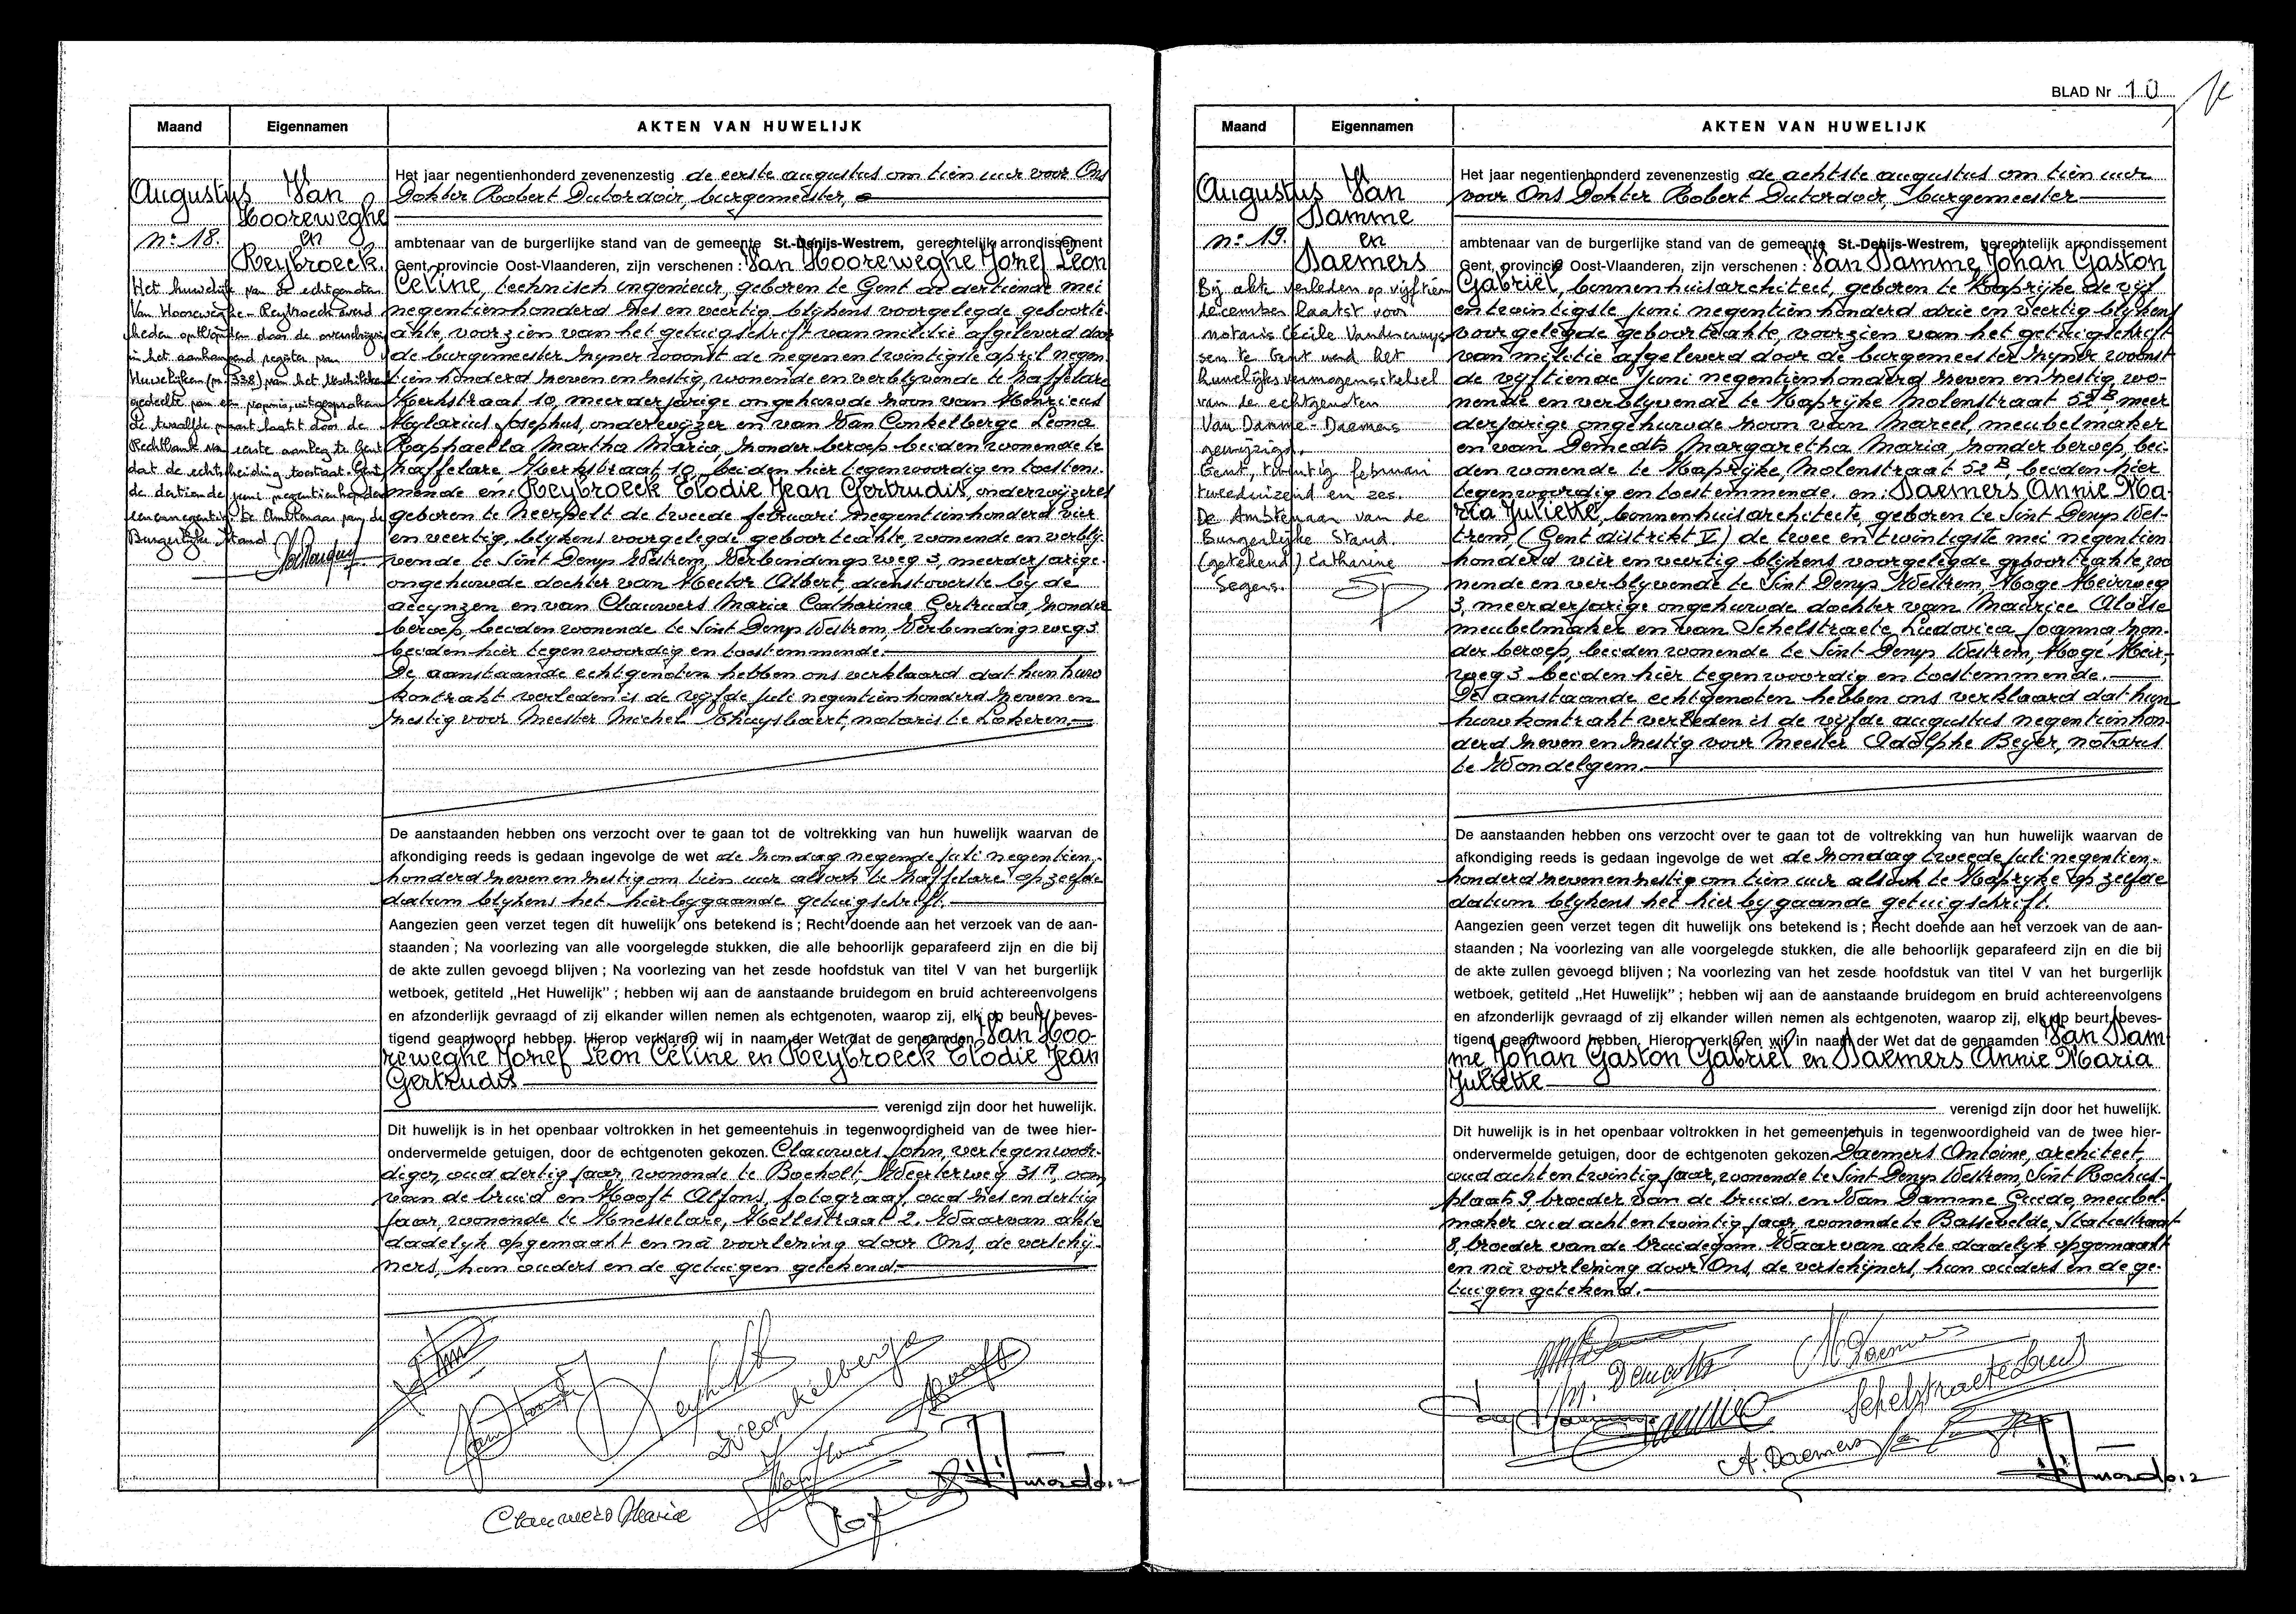 Maand
Eigennamen
AKTEN VAN HUWELIJK
Augustus
n: 18.
Van
Hooreweghe
en
Reybroeck.
Het huwelijk van de echtgenoten
Van Hooreweghe - Reybroeck werd
heden ontbonden door de overschrijving
in het aanhangend register van
Huwelijken (nr 338) van het beschikkend
gedeelte van een vonnis, uitgesproken
de twaalfde maart laatst door de
Rechtbank van eerste aanleg te Gent
dat de echtscheiding toestaat. Gent,
de dertiende juni negentienhonderd
eenennegentig. De Ambtenaar van de
Burgerlijke Stand.
Het jaar negentienhonderd zevenenzestig de eerste augustus om tien uur voor Ons
Dokter Robert Dutordoir, burgemeester,
ambtenaar van de burgerlijke stand van de gemeente St.-Denijs-Westrem, gerechtelijk arrondissement
Gent, provincie Oost-Vlaanderen, zijn verschenen : Van Hooreweghe Jozef Leon
Céline, technisch ingenieur, geboren te Gent de dertiende mei
negentienhonderd zes en veertig blijkens voorgelegde geboorte-
akte, voorzien van het getuigschrift van militie afgeleverd door
de burgemeester zijner woonst de negen en twintigste april negen-
tien honderd zeven en zestig, wonende en verblyvende te Zaffelare
Kerkstraat 10, meerderjarige ongehuwde zoon van Henricus
Hylarius Josephus, onderwijzer en van Van Conkelberge Leona
Raphaella Martha Maria, zonder beroep beiden wonende te
Zaffelare, Kerkstraat 10, beiden hier tegenwoordig en toestem-
mende en: Reybroeck Elodie Jean Gertrudis, onderwijzeres
geboren te Neerpelt de tweede februari negentienhonderd vier
en veertig, blykens voorgelegde geboorteakte, wonende en verbly-
vende te Sint Denys Westrem, Verbindingsweg 3, meerderjarige
ongehuwde dochter van Hector Albert, dienstoverste by de
accynzen en van Clauwers Maria Catharina Gertruda, zonder
beroep, beiden wonende te Sint Denys Westrem, Verbindingsweg 3
beiden hier tegenwoordig en toestemmende.
De aanstaande echtgenoten hebben ons verklaard dat hun huwe
kontrakt verleden is de vyfde juli negentien honderd zeven en
zestig voor Meester Michel Thuysbaert, notaris te Lokeren.
De aanstaanden hebben ons verzocht over te gaan tot de voltrekking van hun huwelijk waarvan de
afkondiging reeds is gedaan ingevolge de wet de zondag negende juli negentien-
honderd zeven en zestig om tien uur alsook te Zaffelare op zelfde
datum blykens het hierbygaande getuigschrift.
Aangezien geen verzet tegen dit huwelijk ons betekend is ; Recht doende aan het verzoek van de aan-
staanden ; Na voorlezing van alle voorgelegde stukken, die alle behoorlijk geparafeerd zijn en die bij
de akte zullen gevoegd blijven ; Na voorlezing van het zesde hoofdstuk van titel V van het burgerlijk
wetboek, getiteld „Het Huwelijk” ; hebben wij aan de aanstaande bruidegom en bruid achtereenvolgens
en afzonderlijk gevraagd of zij elkander willen nemen als echtgenoten, waarop zij, elk op beurt, beves-
tigend geantwoord hebben. Hierop verklaren wij in naam der Wet dat de genaamden Van Hoo-
reweghe Jozef Leon Céline en Reybroeck Elodie Jean
Gertrudis
verenigd zijn door het huwelijk.
Dit huwelijk is in het openbaar voltrokken in het gemeentehuis in tegenwoordigheid van de twee hier-
ondervermelde getuigen, door de echtgenoten gekozen. Clauwers John, vertegenwoor-
diger, oud dertig jaar, wonende te Bocholt, Weerterweg 31A, oom
van de bruid en Hooft Alfons, fotograaf, oud zes en dertig
jaar, wonende te Knesselare, Kellestraat 2. Waarvan akte
dadelyk opgemaakt en na voorlezing door Ons, de verschy-
ners, hun ouders en de getuigen getekend.
Clauwers Maria
BLAD Nr 10
Maand
Eigennamen
AKTEN VAN HUWELIJK
Augustus
n: 19.
Van
Damme
en
Daemers
Bij akte verleden op vijftien
december laatst voor
notaris Cécile Vandenouys-
sen te Gent werd het
huwelijksvermogensstelsel
van de echtgenoten
Van Damme - Daemers
gewijzigd.
Gent, twintig februari
tweeduizend en zes.
De Ambtenaar van de
Burgerlijke Stand.
(getekend) Catharine
Segers.
Het jaar negentienhonderd zevenenzestig de achtste augustus om tien uur
voor Ons Dokter Robert Dutordoir, burgemeester
ambtenaar van de burgerlijke stand van de gemeente St.-Denijs-Westrem, gerechtelijk arrondissement
Gent, provincie Oost-Vlaanderen, zijn verschenen : Van Damme Johan Gaston
Gabriël, binnenhuisarchitect, geboren te Kaprijke de vijf
en twintigste juni negentienhonderd drie en veertig blykens
voorgelegde geboorteakte, voorzien van het getuigschrift
van militie afgeleverd door de burgemeester zijner woonst
de vyftiende juni negentienhonderd zeven en zestig, wo-
nende en verblyvende te Kaprijke Molenstraat 52B, meer
derjarige ongehuwde zoon van Marcel, meubelmaker
en van Demedts Margaretha Maria, zonder beroep, bei-
den wonende te Kaprijke, Molenstraat 52B, beiden hier
tegenwoordig en toestemmende. en: Daemers Annie Ma-
ria Juliette, binnenhuisarchitecte, geboren te Sint Denys Wes-
trem, (Gent distrikt V) de twee en twintigste mei negentien
honderd vier en veertig blijkens voorgelegde geboorteakte, wo
nende en verblyvende te Sint Denys Westrem, Hoge Heirweg
3, meerderjarige ongehuwde dochter van Maurice Aloïse
meubelmaker en van Schelstraete Ludovica Joanna, zon-
der beroep, beiden wonende te Sint Denys Westrem, Hoge Heir-
weg 3 beiden hier tegenwoordig en toestemmende.
De aanstaande echtgenoten hebben ons verklaard dat hun
huwkontrakt verleden is de vijfde augustus negentienhon-
derd zeven en zestig voor Meester Adolphe Beyer, notaris
te Wondelgem.
De aanstaanden hebben ons verzocht over te gaan tot de voltrekking van hun huwelijk waarvan de
afkondiging reeds is gedaan ingevolge de wet de zondag tweede juli negentien-
honderd zeven en zestig om tien uur alsook te Kapryke op zelfde
datum blykens het hierbygaande getuigschrift.
Aangezien geen verzet tegen dit huwelijk ons betekend is ; Recht doende aan het verzoek van de aan-
staanden ; Na voorlezing van alle voorgelegde stukken, die alle behoorlijk geparafeerd zijn en die bij
de akte zullen gevoegd blijven ; Na voorlezing van het zesde hoofdstuk van titel V van het burgerlijk
wetboek, getiteld „Het Huwelijk” ; hebben wij aan de aanstaande bruidegom en bruid achtereenvolgens
en afzonderlijk gevraagd of zij elkander willen nemen als echtgenoten, waarop zij, elk op beurt, beves-
tigend geantwoord hebben. Hierop verklaren wij in naam der Wet dat de genaamden Van Dam
me Johan Gaston Gabriël en Daemers Annie Maria
Juliette
verenigd zijn door het huwelijk.
Dit huwelijk is in het openbaar voltrokken in het gemeentehuis in tegenwoordigheid van de twee hier-
ondervermelde getuigen, door de echtgenoten gekozen Daemers Antoine, architect,
oud acht en twintig jaar, wonende te Sint Denys Westrem, Sint Rochus-
plaats 9, broeder van de bruid en Van Damme Guido, meubel-
maker oud acht en twintig jaar, wonende te Bassevelde, Statiestraat
8, broeder van de bruidegom. Waarvan akte dadelyk opgemaakt
en na voorlezing door Ons, de verschijners, hun ouders en de ge-
tuigen getekend.
M. Demedts
M. Daemers
A. Daemers